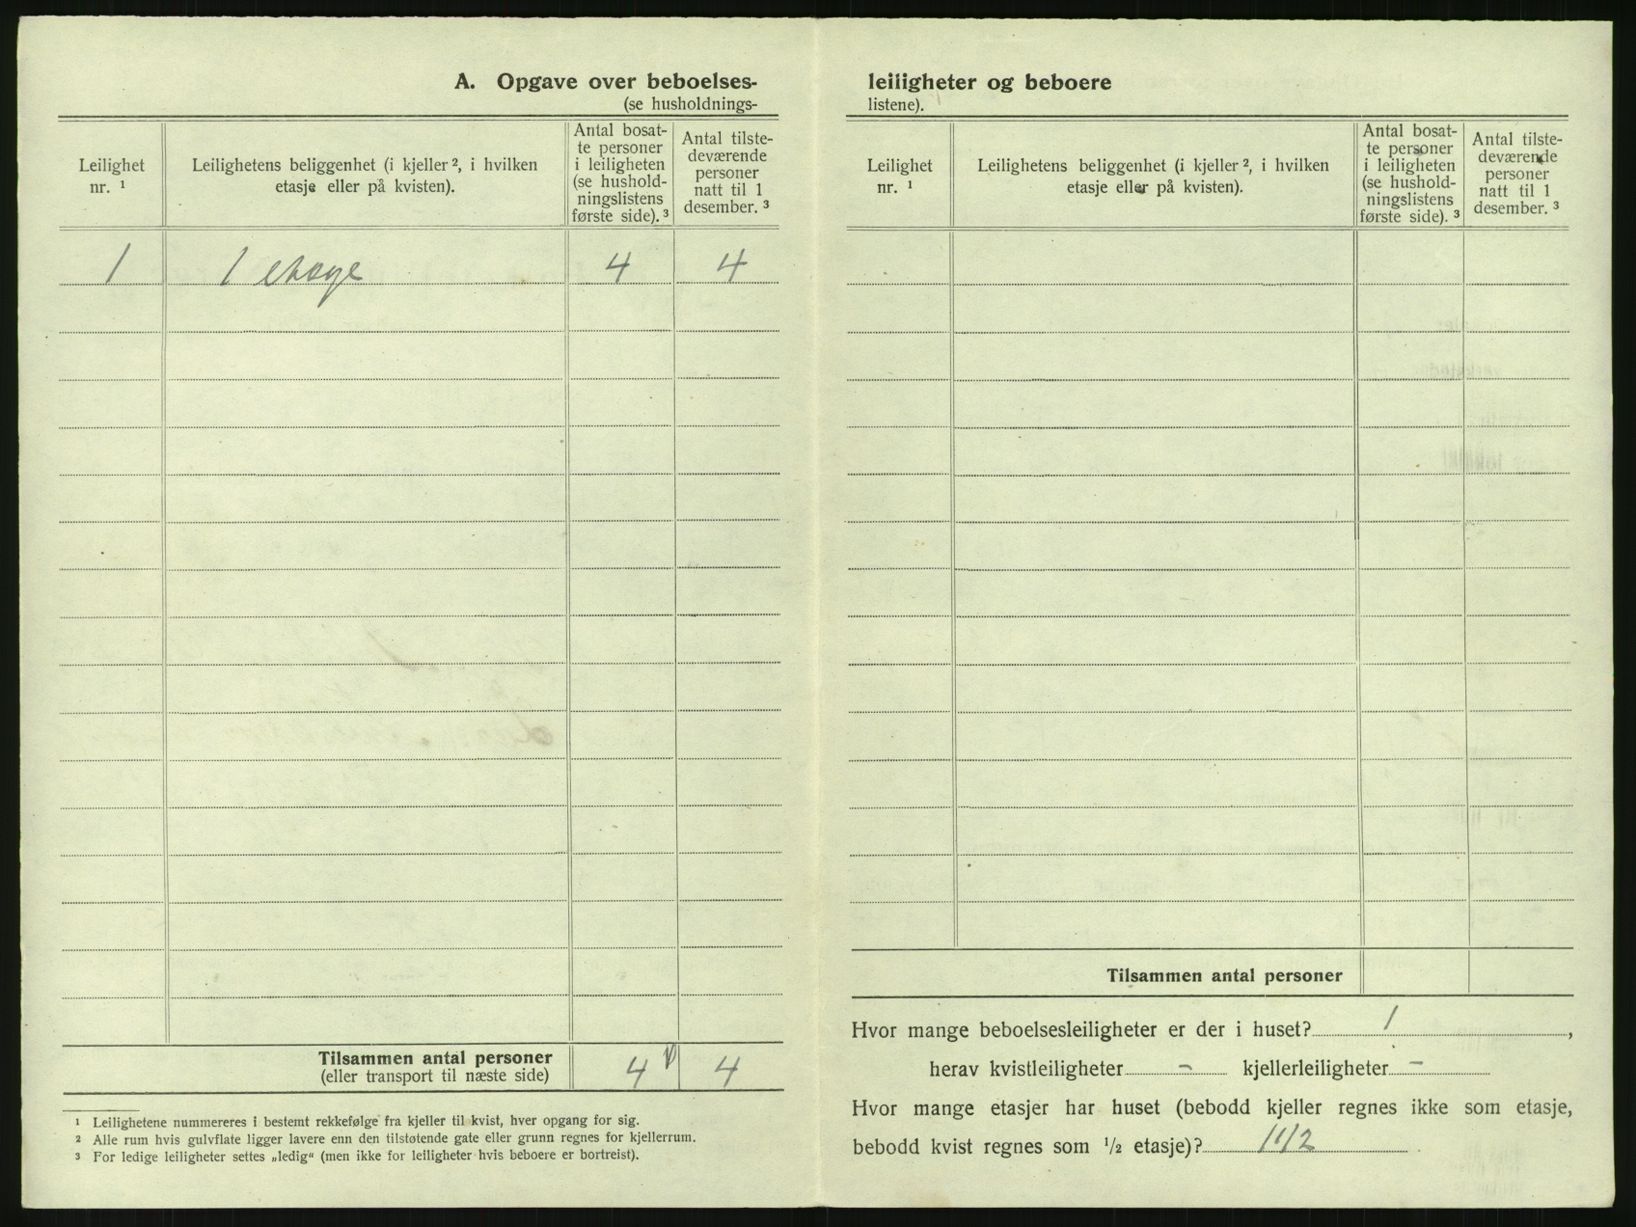 A. Opgave over beboelses-
(se husholdnings-
Leilighet nr. ¹
Leilighetens beliggenhet (i kjeller ², i hvilken etasje eller på kvisten).
Antal bosat-
te personer
i leiligheten
(se hushold-
ningslistens
første side). ³
Antal tilste-
deværende
personer
natt til 1
desember. ³
1 1 etage 4 4
Tilsammen antal personer
(eller transport til næste side)
4 4
¹ Leilighetene nummereres i bestemt rekkefølge fra kjeller til kvist, hver opgang for sig.
² Alle rum hvis gulvflate ligger lavere enn den tilstøtende gate eller grunn regnes for kjellerrum.
³ For ledige leiligheter settes „ledig“ (men ikke for leiligheter hvis beboere er bortreist).
leiligheter og beboere
listene).
Leilighet nr. ¹
Leilighetens beliggenhet (i kjeller ², i hvilken etasje eller på kvisten).
Antal bosat-
te personer
i leiligheten
(se hushold-
ningslistens
første side). ³
Antal tilste-
deværende
personer
natt til 1
desember. ³
Tilsammen antal personer
Hvor mange beboelsesleiligheter er der i huset? 1,
herav kvistleiligheter - kjellerleiligheter -
Hvor mange etasjer har huset (bebodd kjeller regnes ikke som etasje,
bebodd kvist regnes som ½ etasje)? 1 1/2